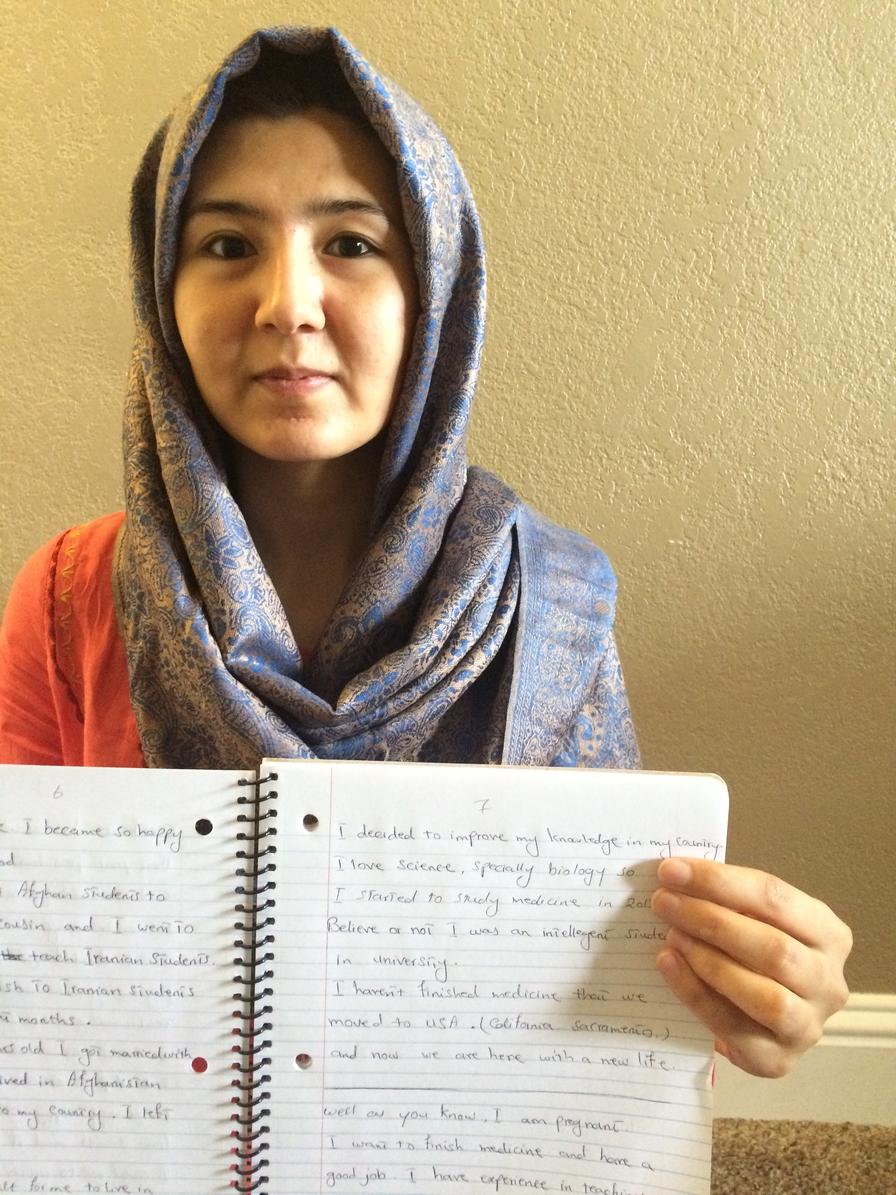 6
I became so happy
Afghan students to
cousin and I went to
teach Iranian students.
to Iranian students
months.
old I got married with
lived in Afghanistan
to my country. I left
for me to live in
7
I decided to improve my knowledge in my country.
I love science, specially biology so
I started to study medicine in
Believe or not I was an intellegent
in university.
I haven't finished medicine that we
moved to USA. (California sacramento.)
and now we are here with a new life.
well as you know. I am pregnant.
I want to finish medicine and have a
good job. I have experience in